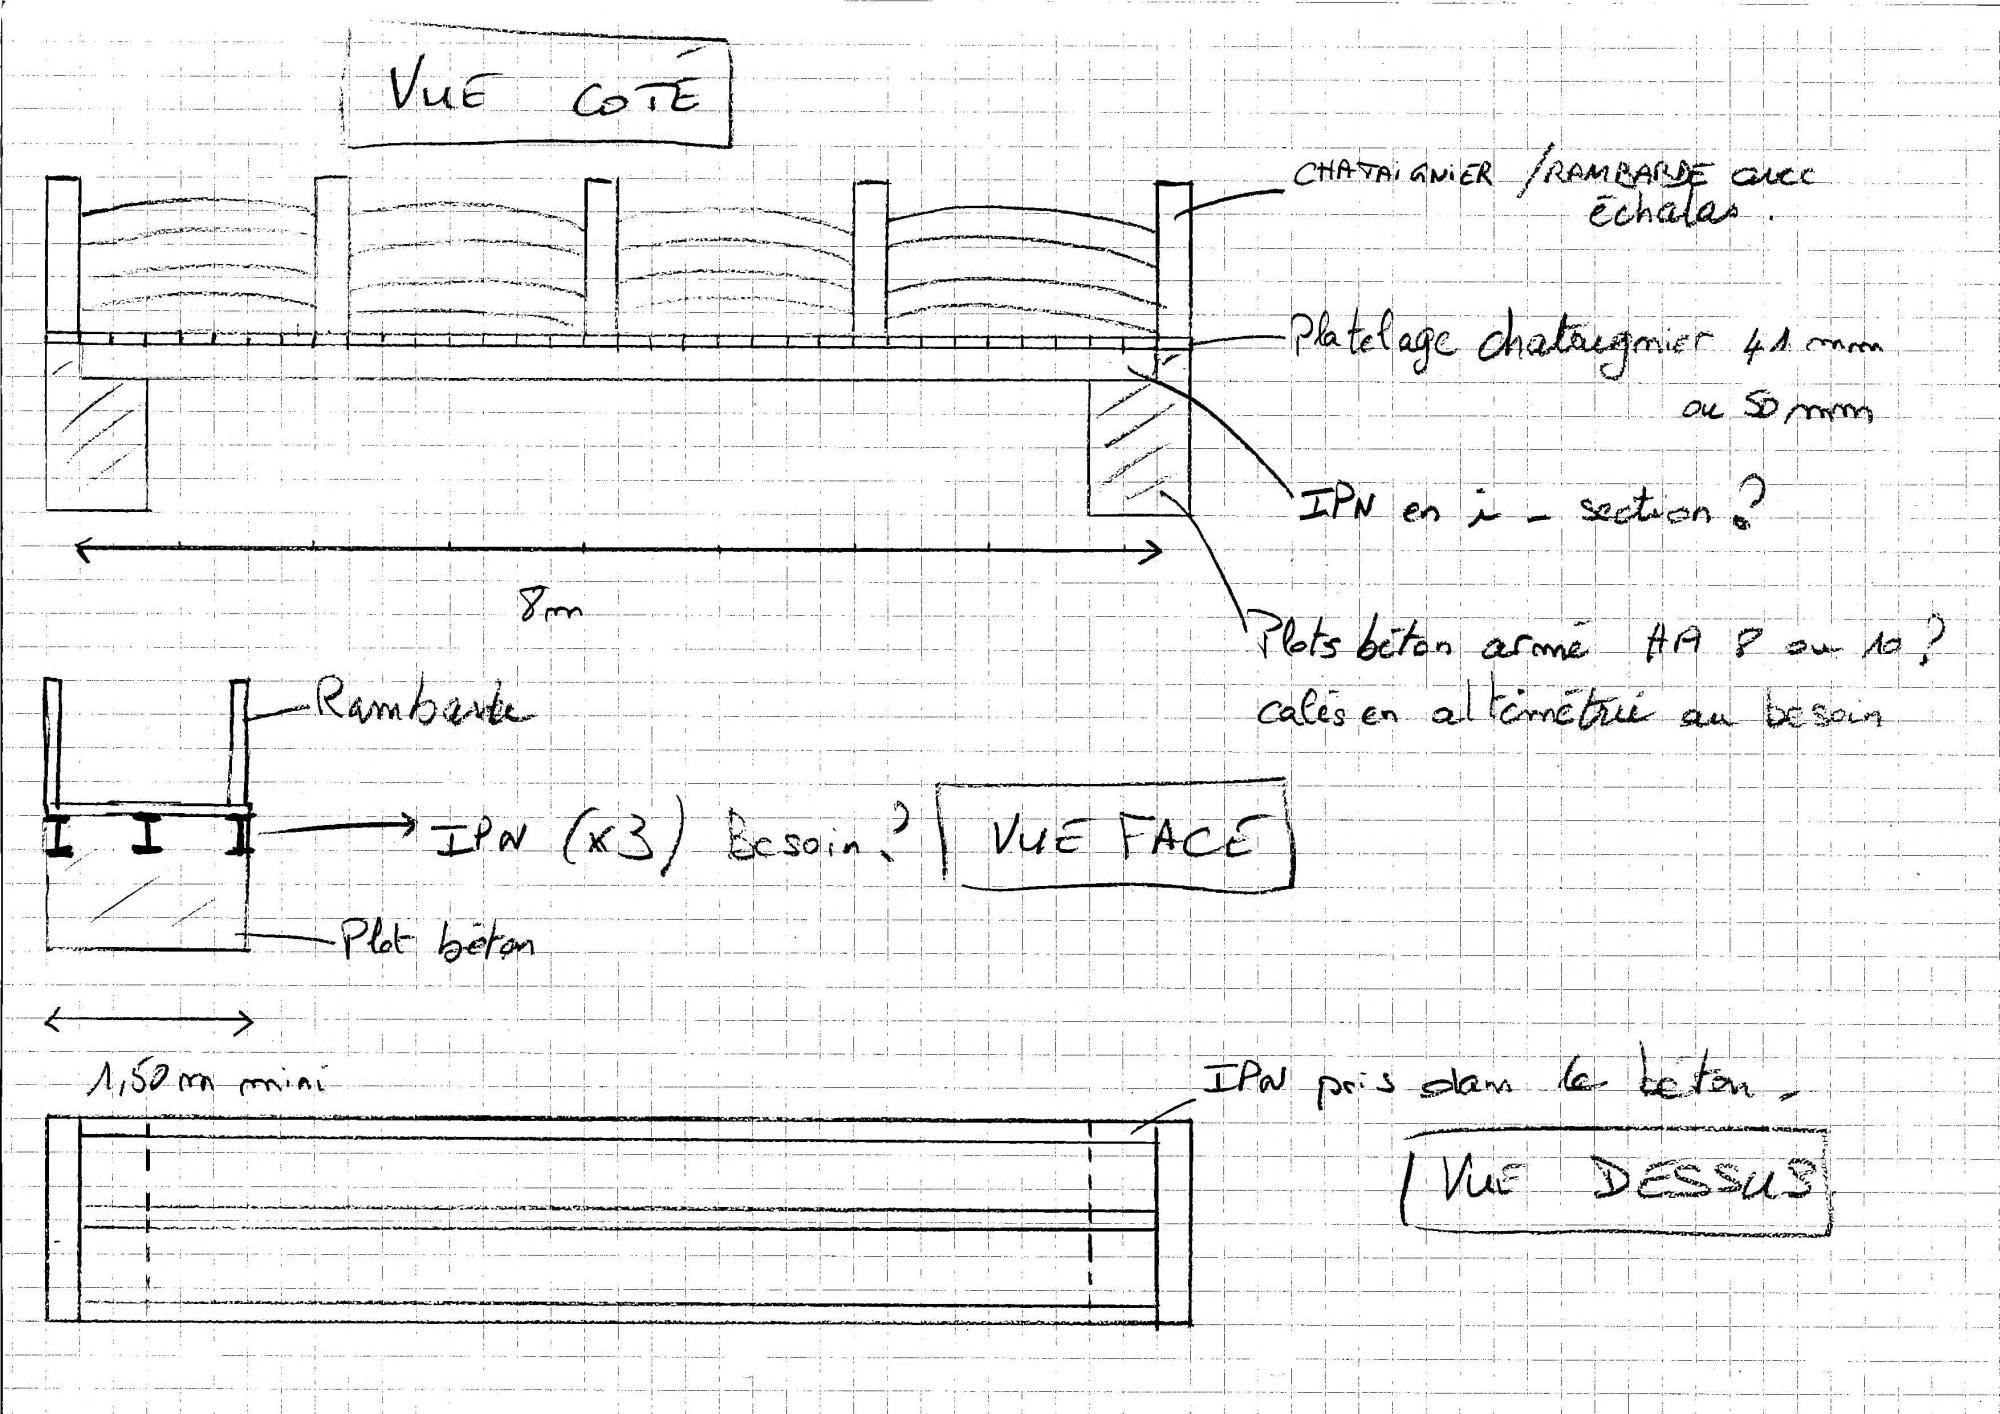 VUE COTÉ
CHATAIGNIER / RAMBARDE avec
échalas.
Platelage chataignier 41 mm
ou 50 mm
IPN en i - section ?
8m
Plots béton armé HA 8 ou 10 ?
calés en altimétrie au besoin
Rambarde
IPN (x3) Besoin ?
VUE FACE
Plot béton
1,50 m mini
IPN pris dans le béton.
VUE DESSUS